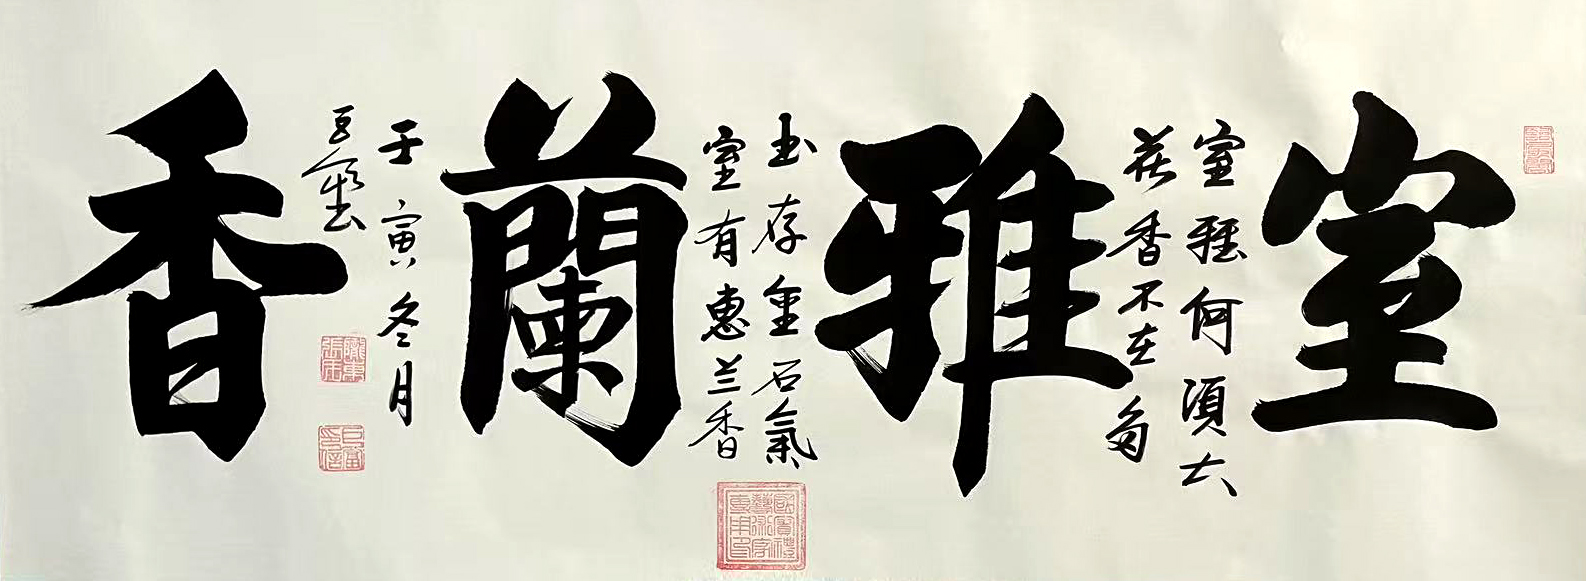 室雅蘭香
室雅何須大
花香不在多
玉存金石氣
室有惠兰香
壬寅冬月